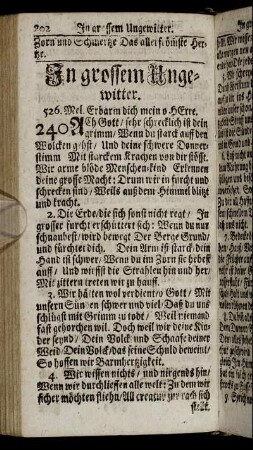 202 In grossem Ungewitter.
Zorn und Schmertze Das aller schönste Her-
tze.
In grossem Unge-
witter.
526. Mel. Erbarm dich mein o HErre.
240 ACh Gott / sehr schrecklich ist dein
grimm / Wenn du starck auff den
Wolcken gehst / Und deine schwere Donner-
stimm Mit starckem krachen von dir stösst.
Wir arme blöde Menschen-kind Erkennen
deine grosse Macht: Drum wir in furcht und
schrecken sind / Weils auß dem Himmel blitzt
und kracht.
2. Die Erde / die sich sonst nicht regt / In
grosser furcht erschüttert sich: Wenn du nur
schnaubest / wird bewegt Der Berge Grund /
und fürchtet dich. Dein Arm ist starck dein
Hand ist schwer / Wenn du im Zorn sie hebest
auff / Und wirffst die Strahlen hin und her /
Mit zittern treten wir zu hauff.
3. Wir hätten wol verdient / o Gott / Mit
unsern Sünden schwer und viel / Daß du uns
schlügst mit Grimm zu todt / Weil niemand
fast gehorchen wil. Doch weil wir deine Kin-
der seynd / Dein Volck und Schaafe deiner
Weid / Dein Volck / das seine Schuld beweint /
So hoffen wir Barmhertzigkeit.
4. Wir wissen nichts / und nirgends hin /
Wenn wir durchlieffen alle welt: Zu dem wir
sicher möchten fliehn / All creatur zur rach sich
stellt.